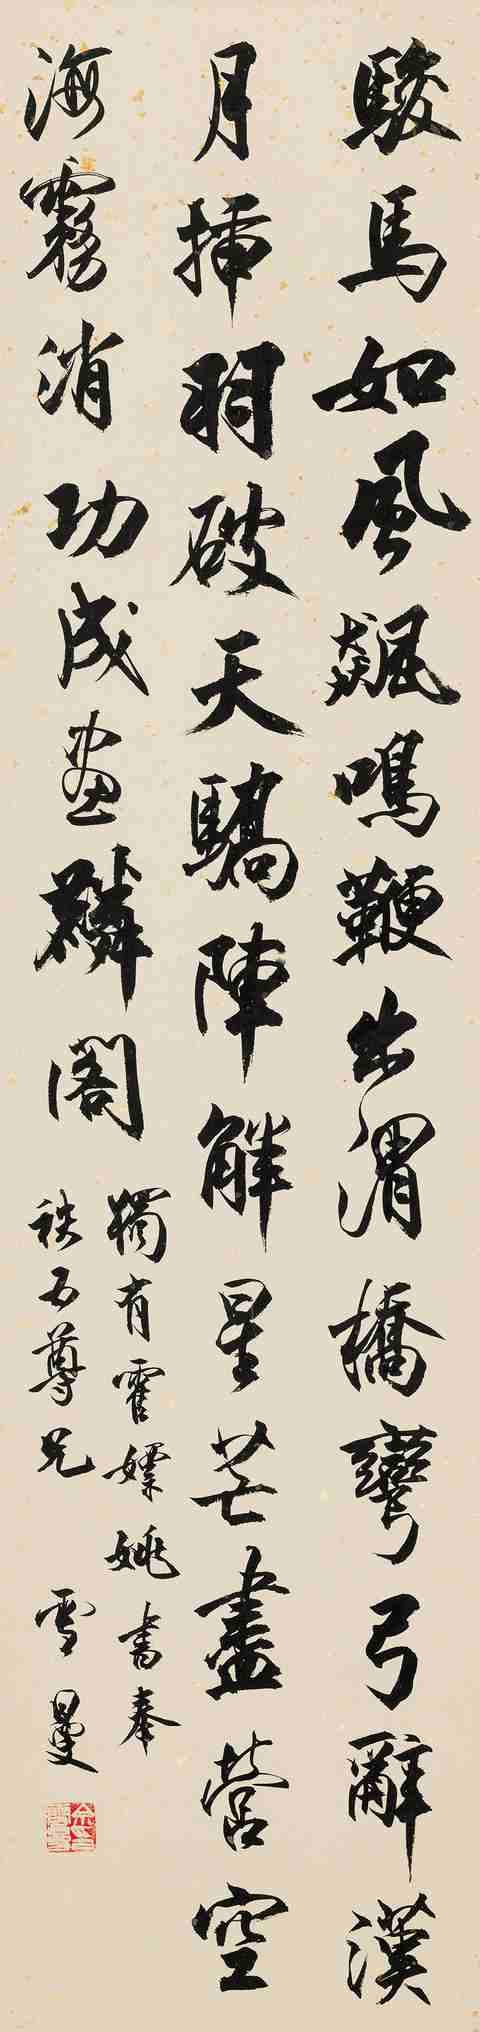 駿馬如風飆鳴鞭出渭橋彎弓辭漢
月插羽破天驕陣解星芒盡營空
海霧消功成畫麟閣
獨有霍嫖姚書奉
秩五尊兄 雪曼